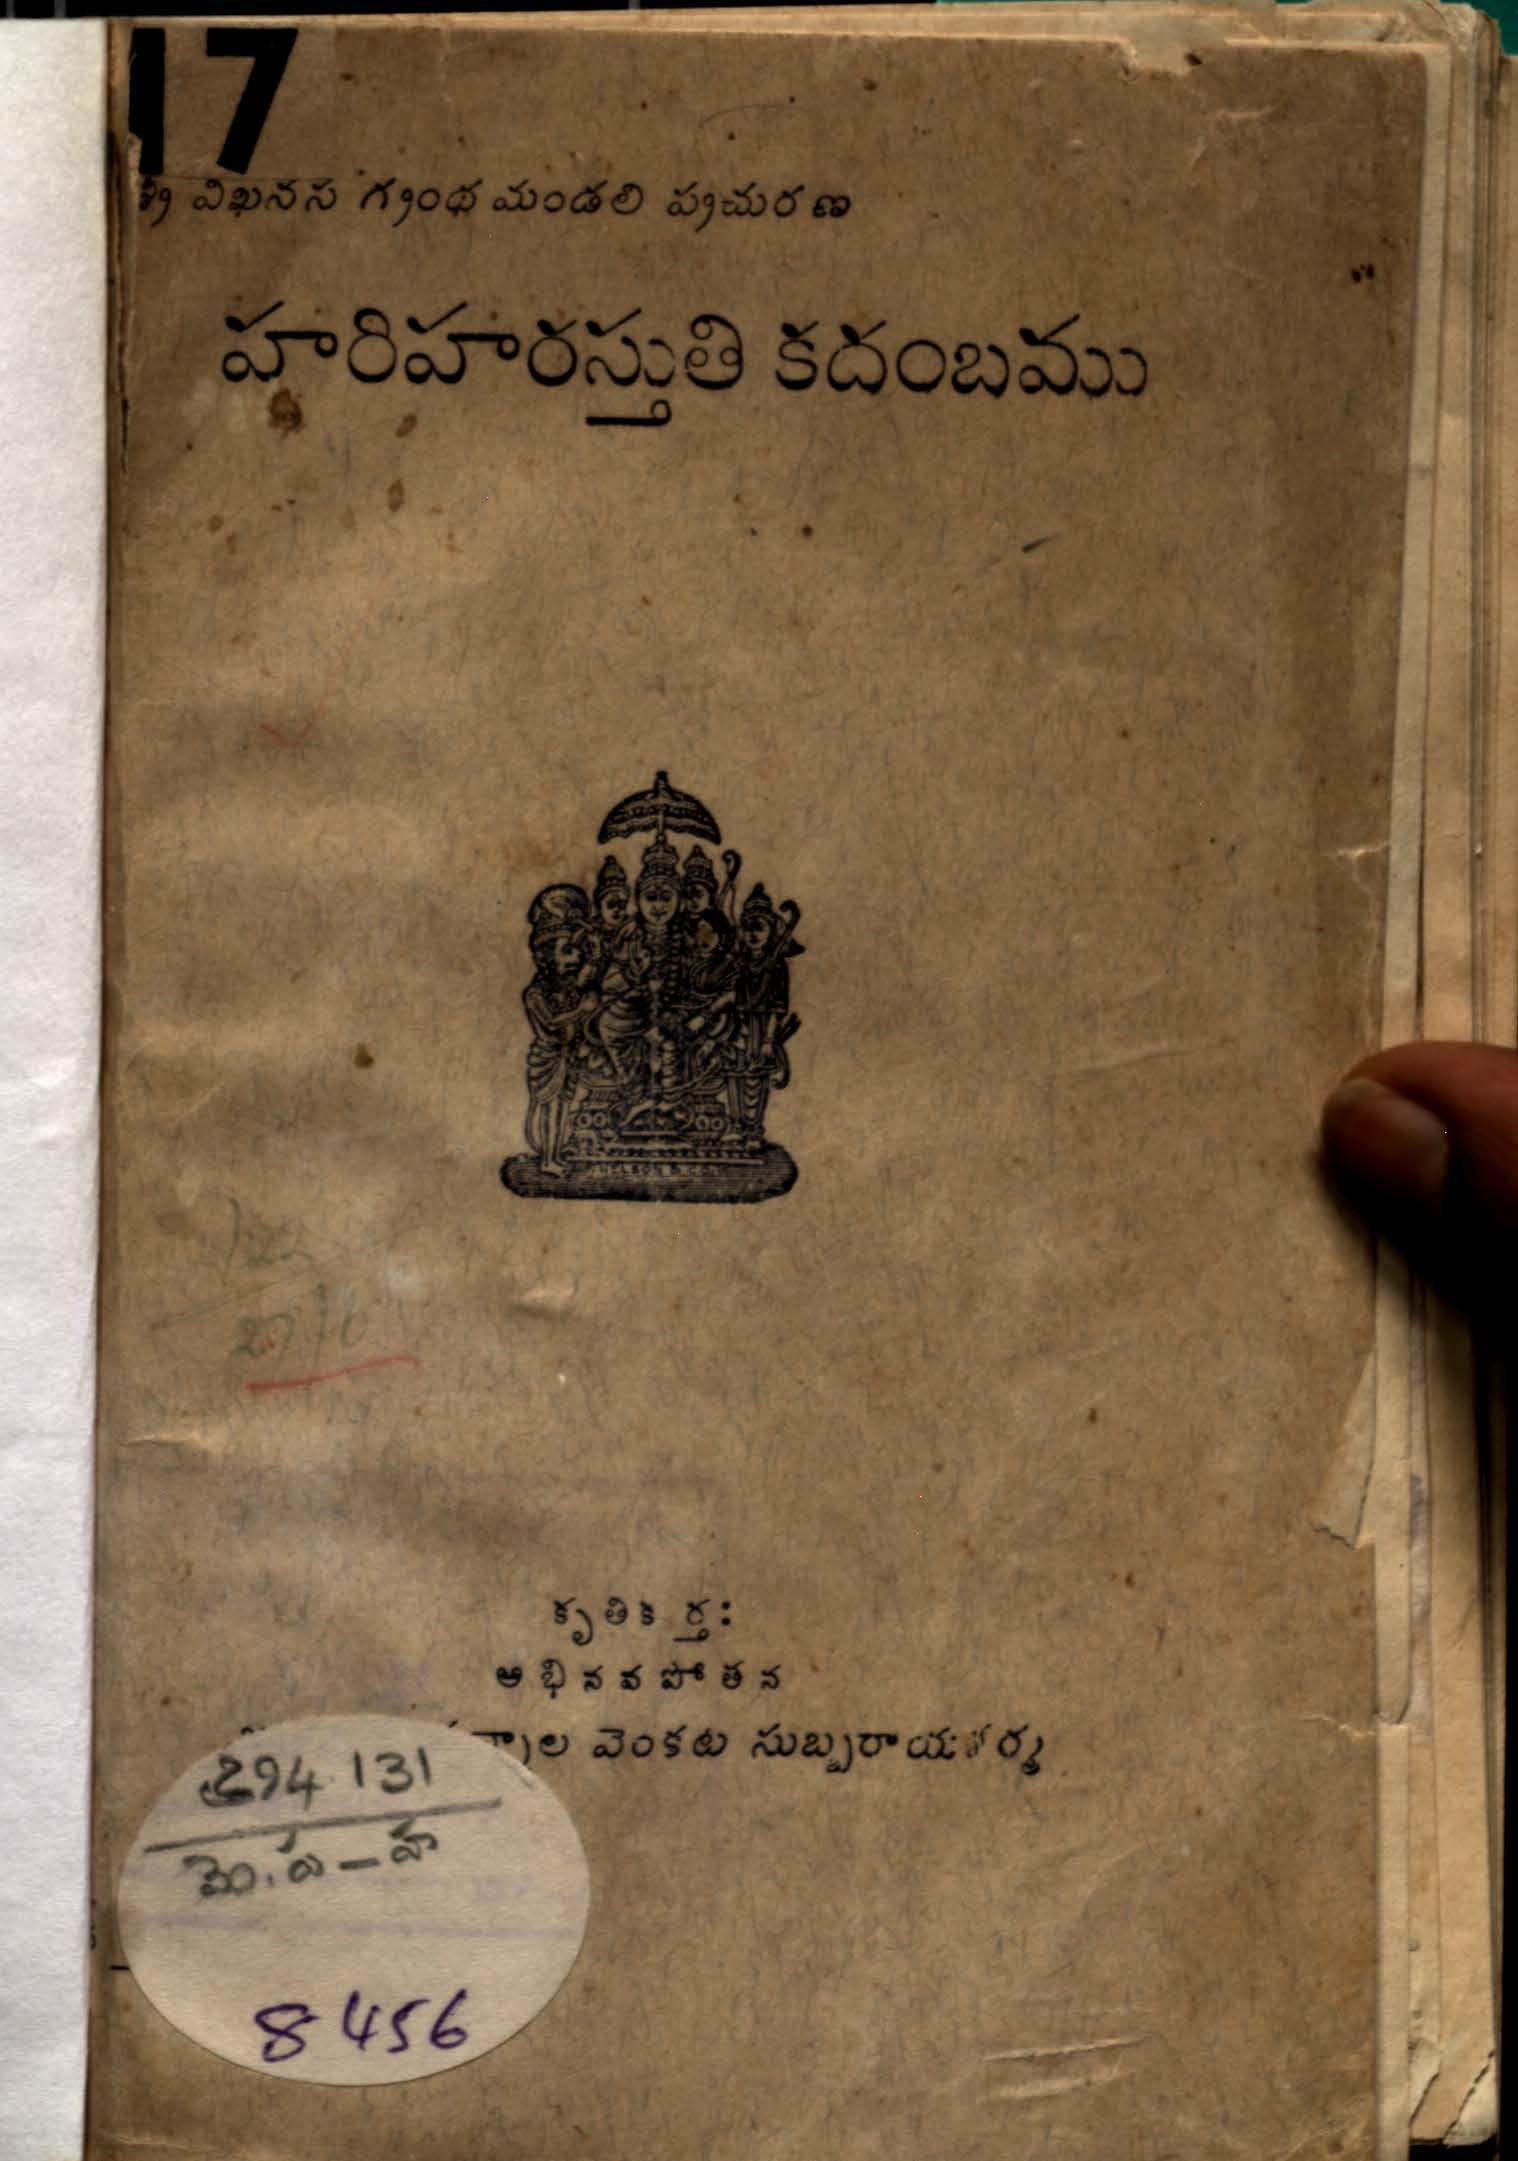 17
శ్రీ విఖనస గ్రంథమండలి ప్రచురణ
హరిహరస్తుతి కదంబము
కృతికర్త:
అభినవపోతన
వెంకట సుబ్బరాయశర్మ
294.131
వెం.హ
8456